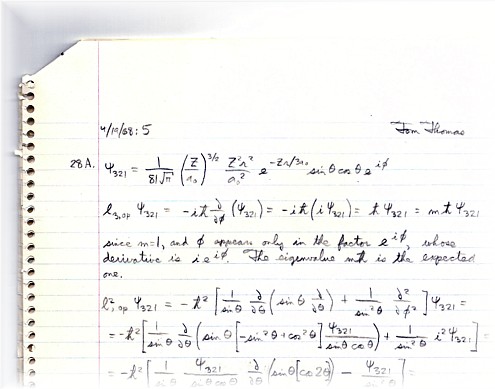 4/19/68: 5 Tom Thomas
28A. ψ₃₂₁ = 1/(81√π) (Z/a₀)^(3/2) Z²r²/a₀² e^(-Zr/3a₀) sin θ cos θ e^(iϕ)
l_(z,op) ψ₃₂₁ = -iħ ∂/∂ϕ (ψ₃₂₁) = -iħ (i ψ₃₂₁) = ħ ψ₃₂₁ = mħ ψ₃₂₁
since m=1, and ϕ appears only in the factor e^(iϕ), whose
derivative is i e^(iϕ). The eigenvalue mħ is the expected
one.
l²_(op) ψ₃₂₁ = -ħ² [1/sin θ ∂/∂θ (sin θ ∂/∂θ) + 1/sin²θ ∂²/∂ϕ²] ψ₃₂₁ =
= -ħ² [1/sin θ ∂/∂θ (sin θ [-sin²θ + cos²θ] ψ₃₂₁/(sin θ cos θ)) + 1/sin²θ i² ψ₃₂₁] =
= -ħ² [1/sin θ ψ₃₂₁/(sin θ cos θ) ∂/∂θ (sin θ [cos 2θ]) - ψ₃₂₁/sin²θ] =